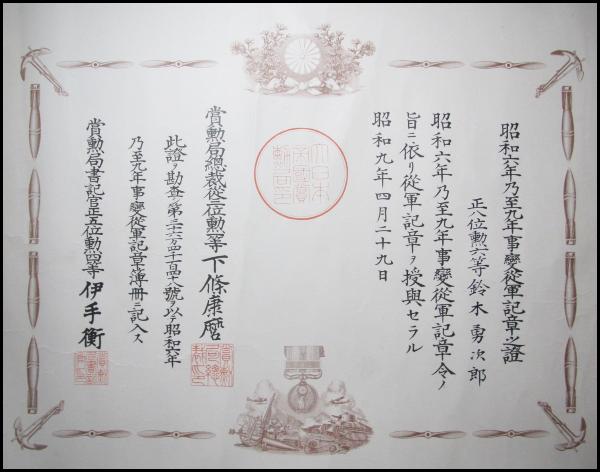 昭和六年乃至九年事變從軍記章之證
正八位勲六等鈴木勇次郎
昭和六年乃至九年事變從軍記章令ノ
旨ニ依リ從軍記章ヲ授與セラル
昭和九年四月二十九日
大日本
帝國賞
勲局印
賞勲局總裁從三位勲二等下條康麿
此證ヲ勘査シ第三十六万四千百四十八號ヲ以テ昭和六年
乃至九年事變從軍記章簿冊ニ記入ス
賞勲局書記官正五位勲四等伊手衡